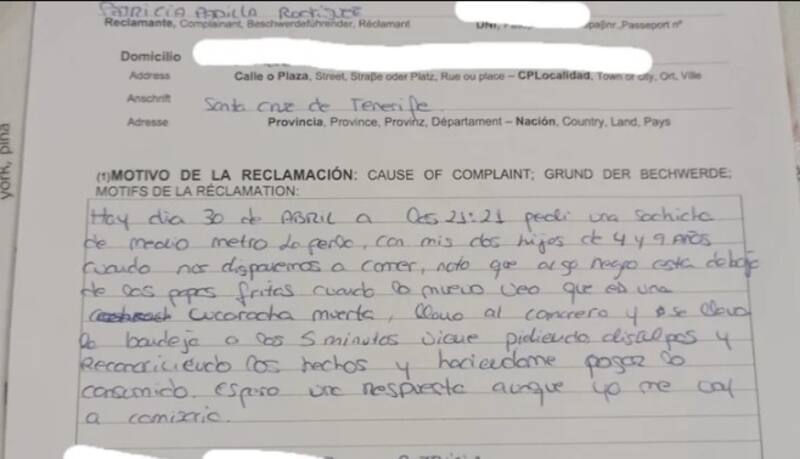 PATRICIA PADILLA Rodriguez
Reclamante, Complainant, Beschwerdeführender, Réclamant
DNI, Passeport nº
Domicilio
Address Calle o Plaza, Street, Straße oder Platz, Rue ou place – CPLocalidad, Town or city, Ort, Ville
Anschrift Santa Cruz de Tenerife.
Adresse Provincia, Province, Provinz, Départament – Nación, Country, Land, Pays
york, pina
(1)MOTIVO DE LA RECLAMACIÓN: CAUSE OF COMPLAINT; GRUND DER BECHWERDE;
MOTIFS DE LA RÉCLAMATION:
Hoy dia 30 de ABRIL a las 21:21 pedi una sachicha
de medio metro de perro, con mis dos hijos de 4 y 9 AÑOS
cuando nos disponemos a comer, noto que algo negro esta debajo
de las papas fritas cuando lo muevo veo que es una
cucaracha muerta, llamo al camarero y se lleva
la bandeja a los 5 minutos viene pidiendo disculpas y
Reconociciendo los hechos y haciendome pagar lo
consumido. espero una respuesta aunque yo me voy
a comizaria.